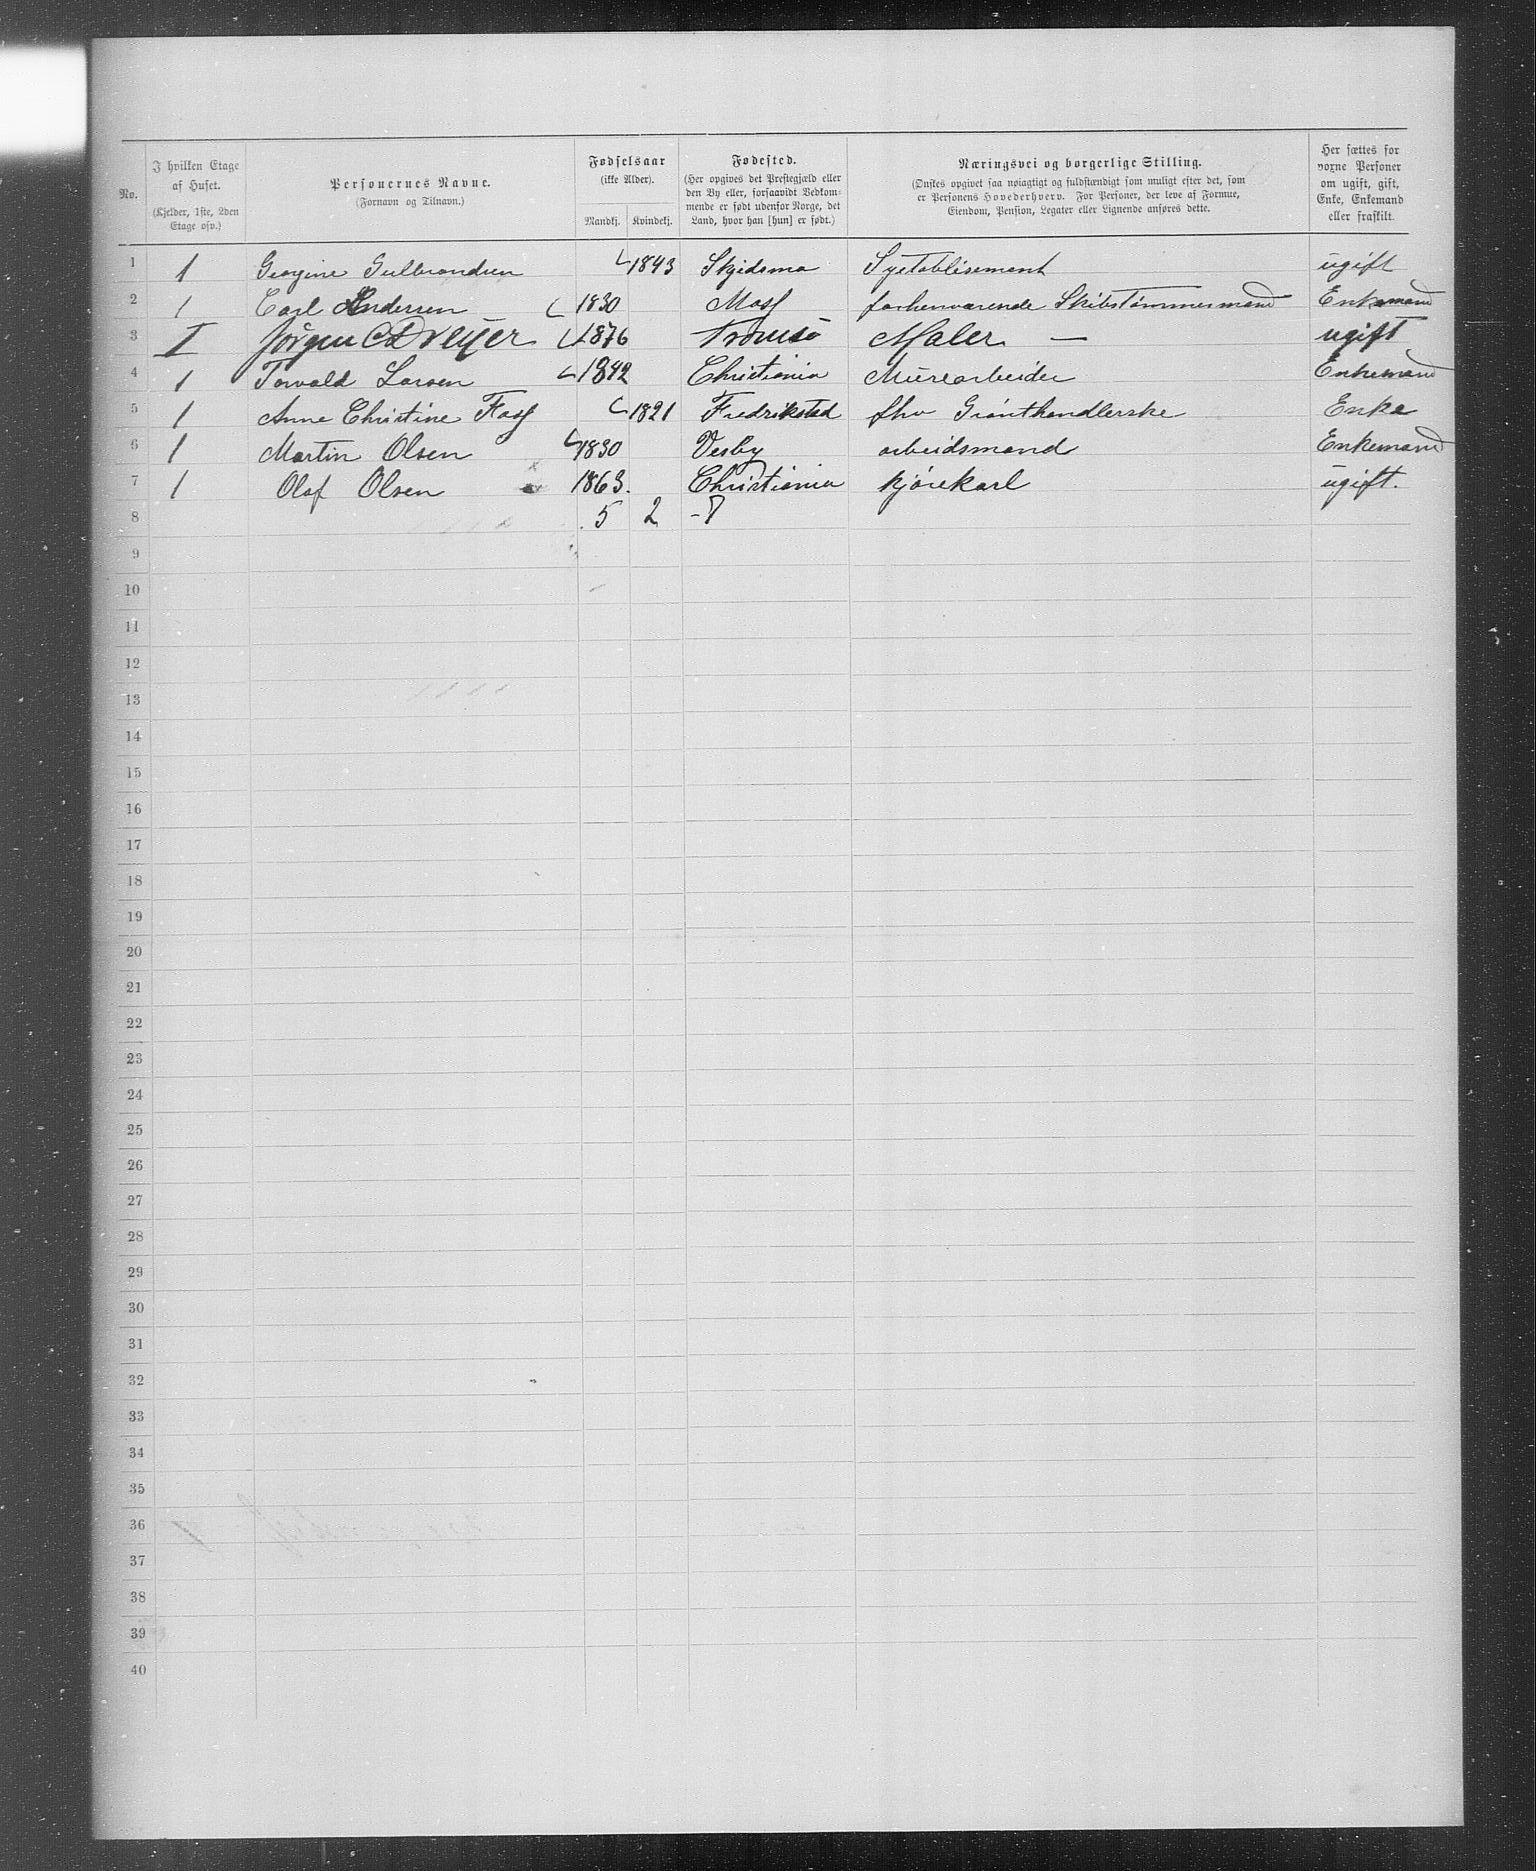 No. | I hvilken Etage af Huset. (Kjelder, 1ste, 2den Etage osv.) | Personernes Navne. (Fornavn og Tilnavn.) | Fødselsaar (ikke Alder). Mandkj. | Kvindekj. | Fødested. (Her opgives det Prestegjæld eller den By eller, forsaavidt Vedkommende er født udenfor Norge, det Land, hvor han [hun] er født.) | Næringsvei og borgerlige Stilling. (Ønskes opgivet saa nøiagtigt og fuldstændigt som muligt efter det, som er Personens Hovederhverv. For Personer, der leve af Formue, Eiendom, Pension, Legater eller Lignende anføres dette. | Her sættes for vorne Personer om ugift, gift, Enke, Enkemand eller fraskilt.
1 | 1 | Georgine Gulbrandsen | 1843 | Skjedsmo | Syetablisement | ugift
2 | 1 | Carl Andersen | 1830 | Moss | forhenværende Skibstømmermand | Enkemand
3 | I | Jørgen Dreyer | 1876 | Tromsø | Maler — | ugift
4 | 1 | Torvald Larsen | 1842 | Christiania | Murearbeider | Enkemand
5 | 1 | Anne Christine Foss | 1821 | Fredrikstad | fhv Grønthandlerske | Enke
6 | 1 | Martin Olsen | 1830 | Vesby | arbeidsmand | Enkemand
7 | 1 | Olaf Olsen | 1863. | Christiania | kjørekarl | ugift.
8 | 5 | 2 | - 7
9
10
11
12
13
14
15
16
17
18
19
20
21
22
23
24
25
26
27
28
29
30
31
32
33
34
35
36
37
38
39
40